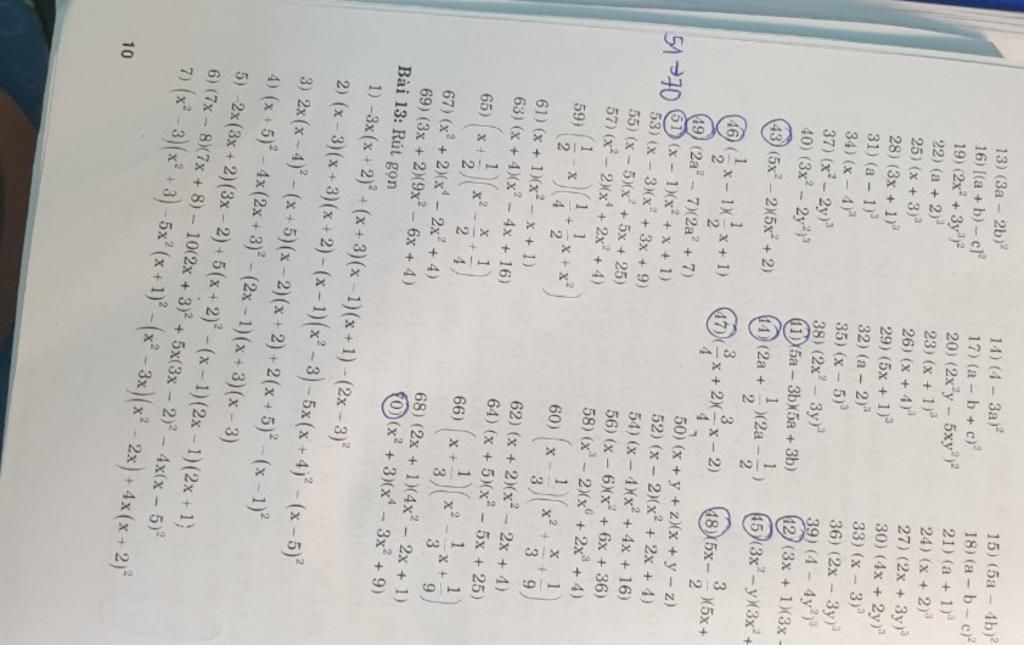 13) (3a − 2b)² 14) (4 − 3a)² 15) (5a − 4b)²
16) [(a + b) − c]² 17) (a − b + c)² 18) (a − b − c)²
19) (2x² + 3y³)² 20) (2x²y − 5xy²)² 21) (a + 1)³
22) (a + 2)³ 23) (x + 1)³ 24) (x + 2)³
25) (x + 3)³ 26) (x + 4)³ 27) (2x + 3y)³
28) (3x + 1)³ 29) (5x + 1)³ 30) (4x + 2y)³
31) (a − 1)³ 32) (a − 2)³ 33) (x − 3)³
34) (x − 4)³ 35) (x − 5)³ 36) (2x − 3y)³
37) (x² − 2y)³ 38) (2x² − 3y)³ 39) (4 − 4y²)³
40) (3x² − 2y²)³ 41) (5a − 3b)(5a + 3b) 42) (3x + 1)(3x −
43) (5x² − 2)(5x² + 2) 44) (2a + 1/2)(2a − 1/2) 45) (3x² − y)(3x² +
46) (1/2x − 1)(1/2x + 1) 47) (3/4x + 2)(3/4x − 2) 48) (5x − 3/2)(5x +
49) (2a² − 7)(2a² + 7) 50) (x + y + z)(x + y − z)
51 → 70
51) (x − 1)(x² + x + 1) 52) (x − 2)(x² + 2x + 4)
53) (x − 3)(x² + 3x + 9) 54) (x − 4)(x² + 4x + 16)
55) (x − 5)(x² + 5x + 25) 56) (x − 6)(x² + 6x + 36)
57) (x² − 2)(x⁴ + 2x² + 4) 58) (x³ − 2)(x⁶ + 2x³ + 4)
59) (1/2 − x)(1/4 + 1/2x + x²) 60) (x − 1/3)(x² + x/3 + 1/9)
61) (x + 1)(x² − x + 1) 62) (x + 2)(x² − 2x + 4)
63) (x + 4)(x² − 4x + 16) 64) (x + 5)(x² − 5x + 25)
65) (x + 1/2)(x² − x/2 + 1/4) 66) (x + 1/3)(x² − 1/3x + 1/9)
67) (x² + 2)(x⁴ − 2x² + 4) 68) (2x + 1)(4x² − 2x + 1)
69) (3x + 2)(9x² − 6x + 4) 70) (x² + 3)(x⁴ − 3x² + 9)
Bài 13: Rút gọn
1) −3x(x + 2)² + (x + 3)(x − 1)(x + 1) − (2x − 3)²
2) (x − 3)(x + 3)(x + 2) − (x − 1)(x² − 3) − 5x(x + 4)² − (x − 5)²
3) 2x(x − 4)² − (x + 5)(x − 2)(x + 2) + 2(x + 5)² − (x − 1)²
4) (x + 5)² − 4x(2x + 3)² − (2x − 1)(x + 3)(x − 3)
5) −2x(3x + 2)(3x − 2) + 5(x + 2)² − (x − 1)(2x − 1)(2x + 1)
6) (7x − 8)(7x + 8) − 10(2x + 3)² + 5x(3x − 2)² − 4x(x − 5)²
7) (x² − 3)(x² + 3) − 5x²(x + 1)² − (x² − 3x)(x² − 2x) + 4x(x + 2)²
10